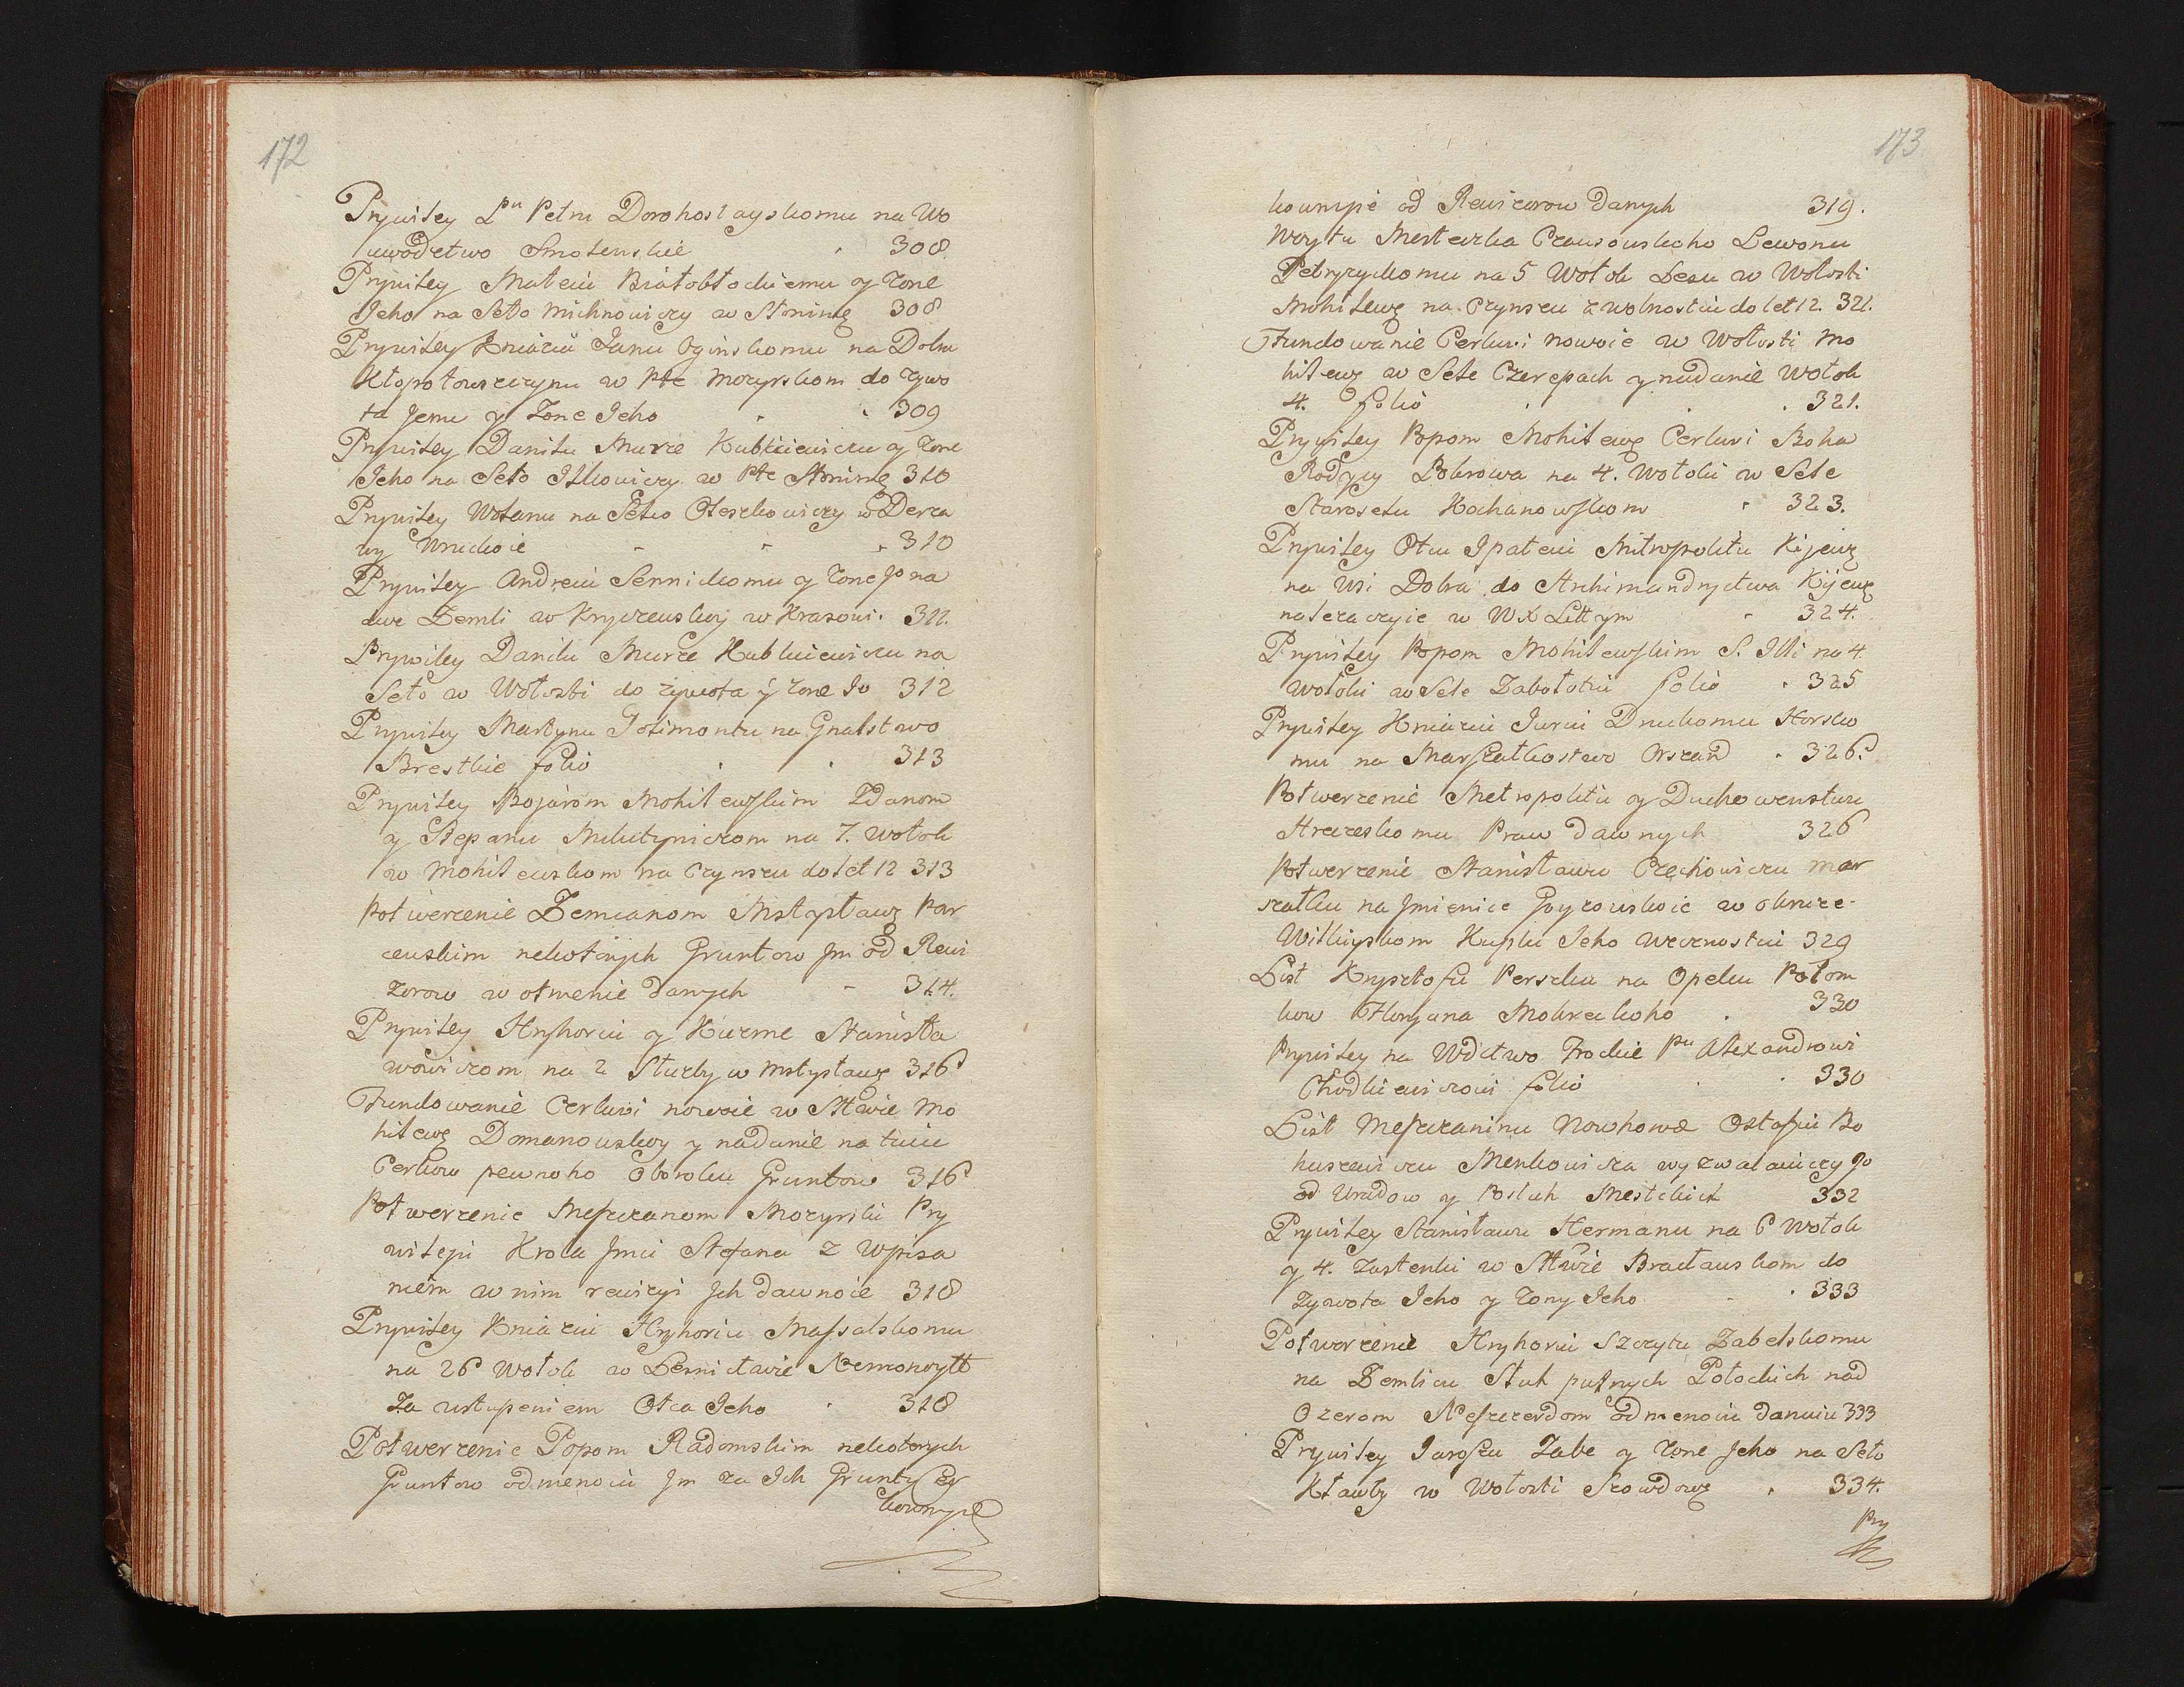 172
Prywiley Pu Petru Dorohostayskomu na Wo
iewodctwo Smolenskie 308.
Prywiley Mateiu Białobłockiemu y Żone
Jeho na Seło Michnowiczy w Słonimę 308
Prywiley Kniaziu Janu Ogińskomu na Dobra
Kłopotowszczynu w Pte Mozyrskom do żywo
ta Jemu y Żone Jeho 309
Prywiley Daniłu Murze Kubkiewiczu y żone
Jeho na Seło Ilkowiczy w Pte Słonimę 310
Prywiley Wolanu na Sełco Oleszkowiczy w Derża
wy Uruckoie 310
Prywiley Andreiu Sennickomu y żone Jo na
dwe Zemli w Kryczewskoy w Krasowi. 311.
Prywiley Daniłu Murze Kubkiewiczu na
Seło w Wołosti do żywota y żone Jo 312
Prywiley Martynu Goźimontu na Gnalstwo
Brestkie folio 313
Prywiley Bojarom Mohilewskim Zdanom
y Stepanu Milutyniczom na 7. Wołok
w Mohilewskom na Czynszu do let 12 313
Potwerżenie Zemianom Mstysławę Par
cewskim nekotorych Gruntow Jm od Rewi
zorow w otmenie danych 314.
Prywiley Hryhoriu y Kuzme Stanisła
wowiczom na 2 Służby w Mstysławę 316
Fundowanie Cerkwi nowoie w Sttwie Mo
hilewę Domanowskoy y nadanie na tuiu
Cerkow pewnoho Obroku Gruntow 316
Potwerżenie Meszczanom Mozyrski Pry
wileju Krola Jmci Stefana z Wpisa
niem w nim rewizyi Jch dawnoie 318
Prywiley Kniaziu Hryhoriu Massalskomu
na 26 Wołok w Lennictwie Niemonoytt
Za ustupeniem Otca Jeho 318
Potwerżenie Popom Radomskim nekotorych
Gruntow odmenoiu Jm za Ich Grunty Cer
kownyie
173
kownyie od Rewizorow danych 319.
Woytu Mesteczka Czausouskoho Lewonu
Petryzyckomu na 5 Wołok Lesu w Wołosti
Mohilewę na Czynszu z wolnostiu do let 12. 321.
Fundowanie Cerkwi nowoie w Wołosti Mo
hilewę w Sele Czerepach y nadanie Wołok
4. folio 321.
Prywiley Popom Mohilewę Cerkwi Boha
Rodycy Pokrowa na 4. Wołoki w Sele
Staroselu Kochanowskom 323.
Prywiley Otcu Ipateiu Mitropolitu Kijewę
na Wsi Dobra do Archimandryctwa Kijewę
należaczyie w WX Littym 324.
Prywiley Popom Mohilewskim S. Illi na 4
Wołoki w Sele Zabołotiu folio 325
Prywiley Kniaziu Juriu Druckomu Horsko
mu na Marszałkostwo Orszand 326.
Potwerżenie Metropolitu y Duchowenstwu
Hreczeskomu Praw dawnych 326
Potwerżenie Stanisławu Czechowiczu Mar
szałku na Jmienice Goyżouskoie w okruze
Wilkiyskom Kuplu Jeho Wecznostiu 329
List Krysztofu Perszku na Opeku Potom
kow Floryana Mokrzekoho 330
Prywiley na Wdctwo Trockie Pu Alexandrowi
Chodkiewiczowi folio 330
List Meszczaninu Nowhoroda Ostafiu Bo
huszewiczu Menkowicza wyzwalaiuczy Jo
od Uradow y Posłuh Mestckich 332
Prywiley Stanisławu Hermanu na 6 Wołok
y 4. Zastenki w Sttwie Bracławskom do
żywota Jeho y Żony Jeho 333
Potwerżenie Hryhoriu Szczytu Zabelskomu
na Zemlicu Słuh putnych Połockich nad
Ozerom Neszczerdom odmenoiu danuiu 333
Prywiley Jaroszu Żabe y Żone Jeho na Seło
Kławty w Wołosti Skowdowę 334.
Pry